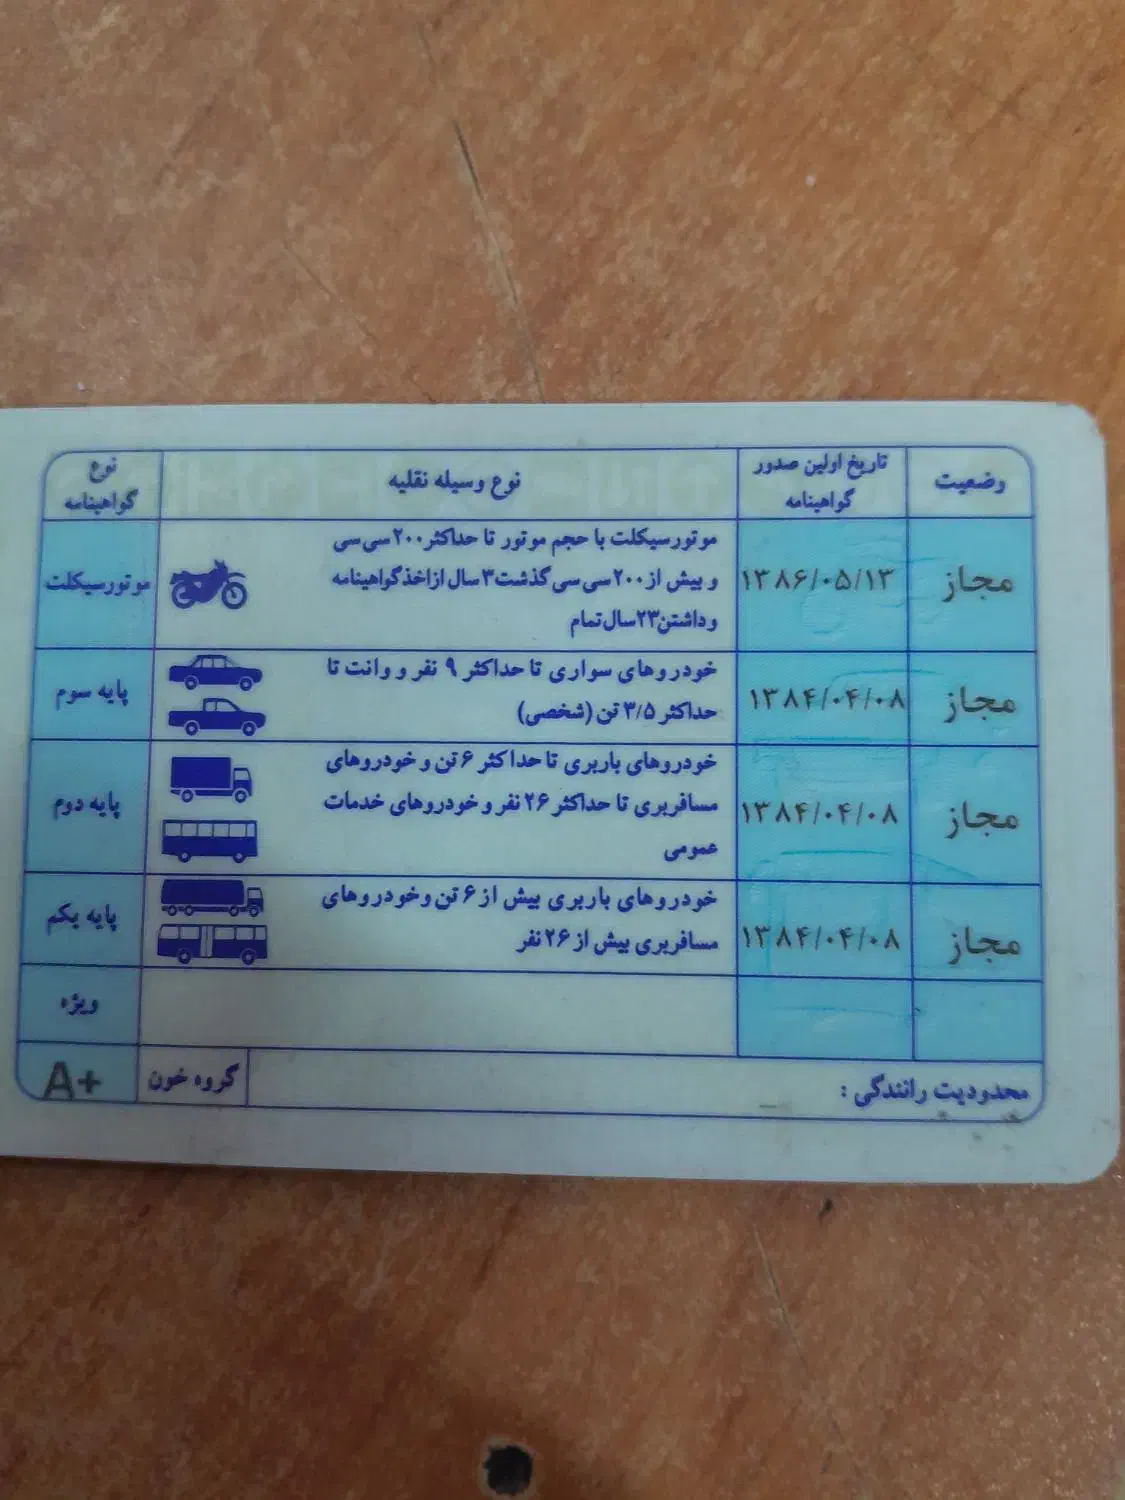 نوع گواهینامه
نوع وسیله نقلیه
تاریخ اولین صدور گواهینامه
وضعیت
موتورسیکلت
موتورسیکلت با حجم موتور تا حداکثر ۲۰۰ سی سی
و بیش از ۲۰۰ سی سی گذشت ۳ سال از اخذ گواهینامه
و داشتن ۲۳ سال تمام
۱۳۸۶/۰۵/۱۳
مجاز
پایه سوم
خودروهای سواری تا حداکثر ۹ نفر و وانت تا
حداکثر ۳/۵ تن (شخصی)
۱۳۸۴/۰۴/۰۸
مجاز
پایه دوم
خودروهای باربری تا حداکثر ۶ تن و خودروهای
مسافربری تا حداکثر ۲۶ نفر و خودروهای خدمات
عمومی
۱۳۸۴/۰۴/۰۸
مجاز
پایه یکم
خودروهای باربری بیش از ۶ تن و خودروهای
مسافربری بیش از ۲۶ نفر
۱۳۸۴/۰۴/۰۸
مجاز
ویژه
A+
گروه خون
محدودیت رانندگی :